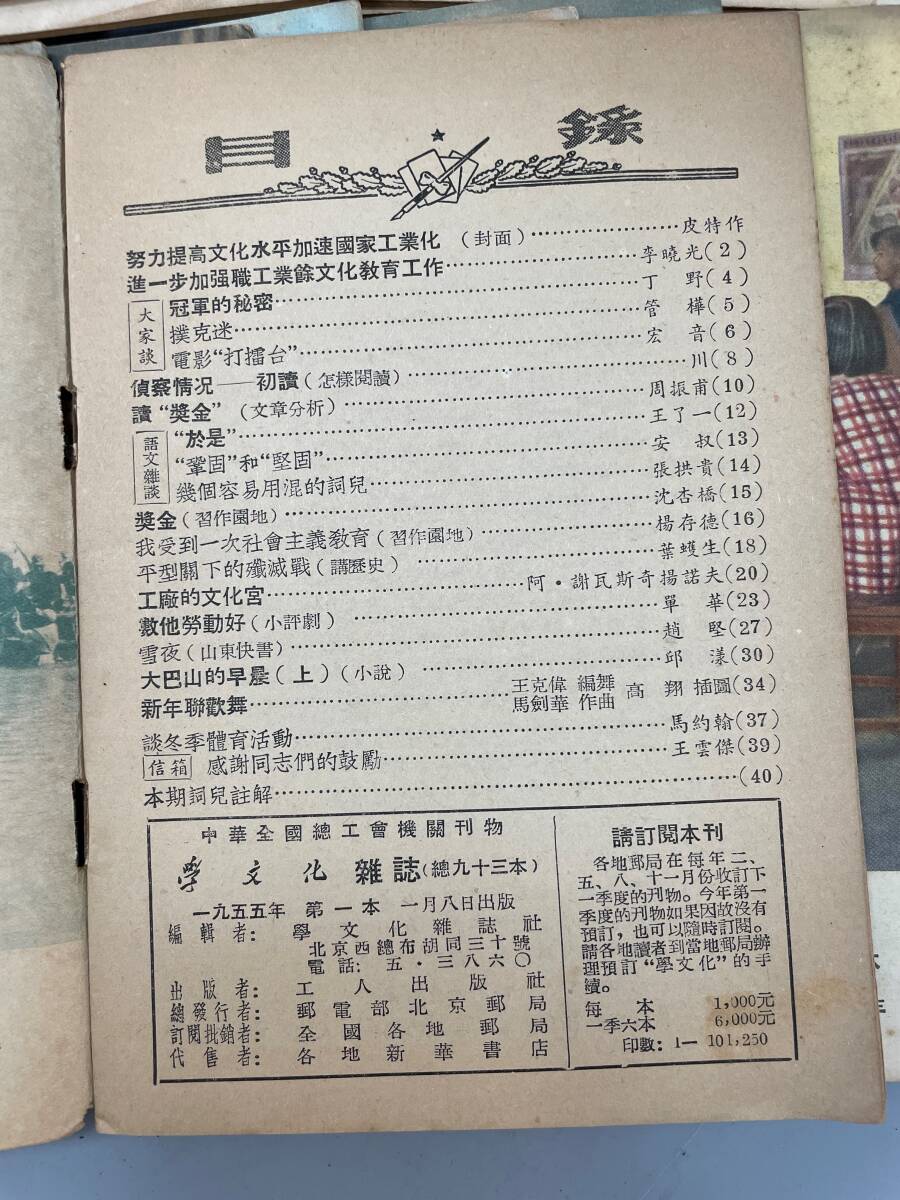 目錄
努力提高文化水平加速國家工業化(封面)……皮特作
進一步加强職工業餘文化教育工作……李曉光(2)
大家談
冠軍的秘密……丁野(4)
撲克迷……管樺(5)
電影“打擂台”……宏音(6)
偵察情况——初讀(怎樣閱讀)……川(8)
讀“獎金”(文章分析)……周振甫(10)
語文雜談
“於是”……王了一(12)
“鞏固”和“堅固”……安叔(13)
幾個容易用混的詞兒……張拱貴(14)
獎金(習作園地)……沈杏橋(15)
我受到一次社會主義教育(習作園地)……楊存德(16)
平型關下的殲滅戰(講歷史)……葉蠖生(18)
工廠的文化宮……阿·謝瓦斯奇揚諾夫(20)
數他勞動好(小評劇)……單華(23)
雪夜(山東快書)……趙堅(27)
大巴山的早晨(上)(小說)……邱漾(30)
新年聯歡舞……王克偉 編舞 馬劍華 作曲 高翔 插圖(34)
談冬季體育活動……馬約翰(37)
信箱 感謝同志們的鼓勵……王雲傑(39)
本期詞兒註解……(40)
中華全國總工會機關刊物
學文化 雜誌(總九十三本)
一九五五年 第一本 一月八日出版
編輯者：學文化雜誌社
北京西總布胡同三十號
電話：五·三八六〇
出版者：工人出版社
總發行者：郵電部北京郵局
訂閱批銷者：全國各地郵局
代售者：各地新華書店
請訂閱本刊
各地郵局在每年二、
五、八、十一月份收訂下
一季度的刊物。今年第一
季度的刊物如果因故沒有
預訂，也可以隨時訂閱。
請各地讀者到當地郵局辦
理預訂“學文化”的手
續。
每本 1,000元
一季六本 6,000元
印數：1—101,250